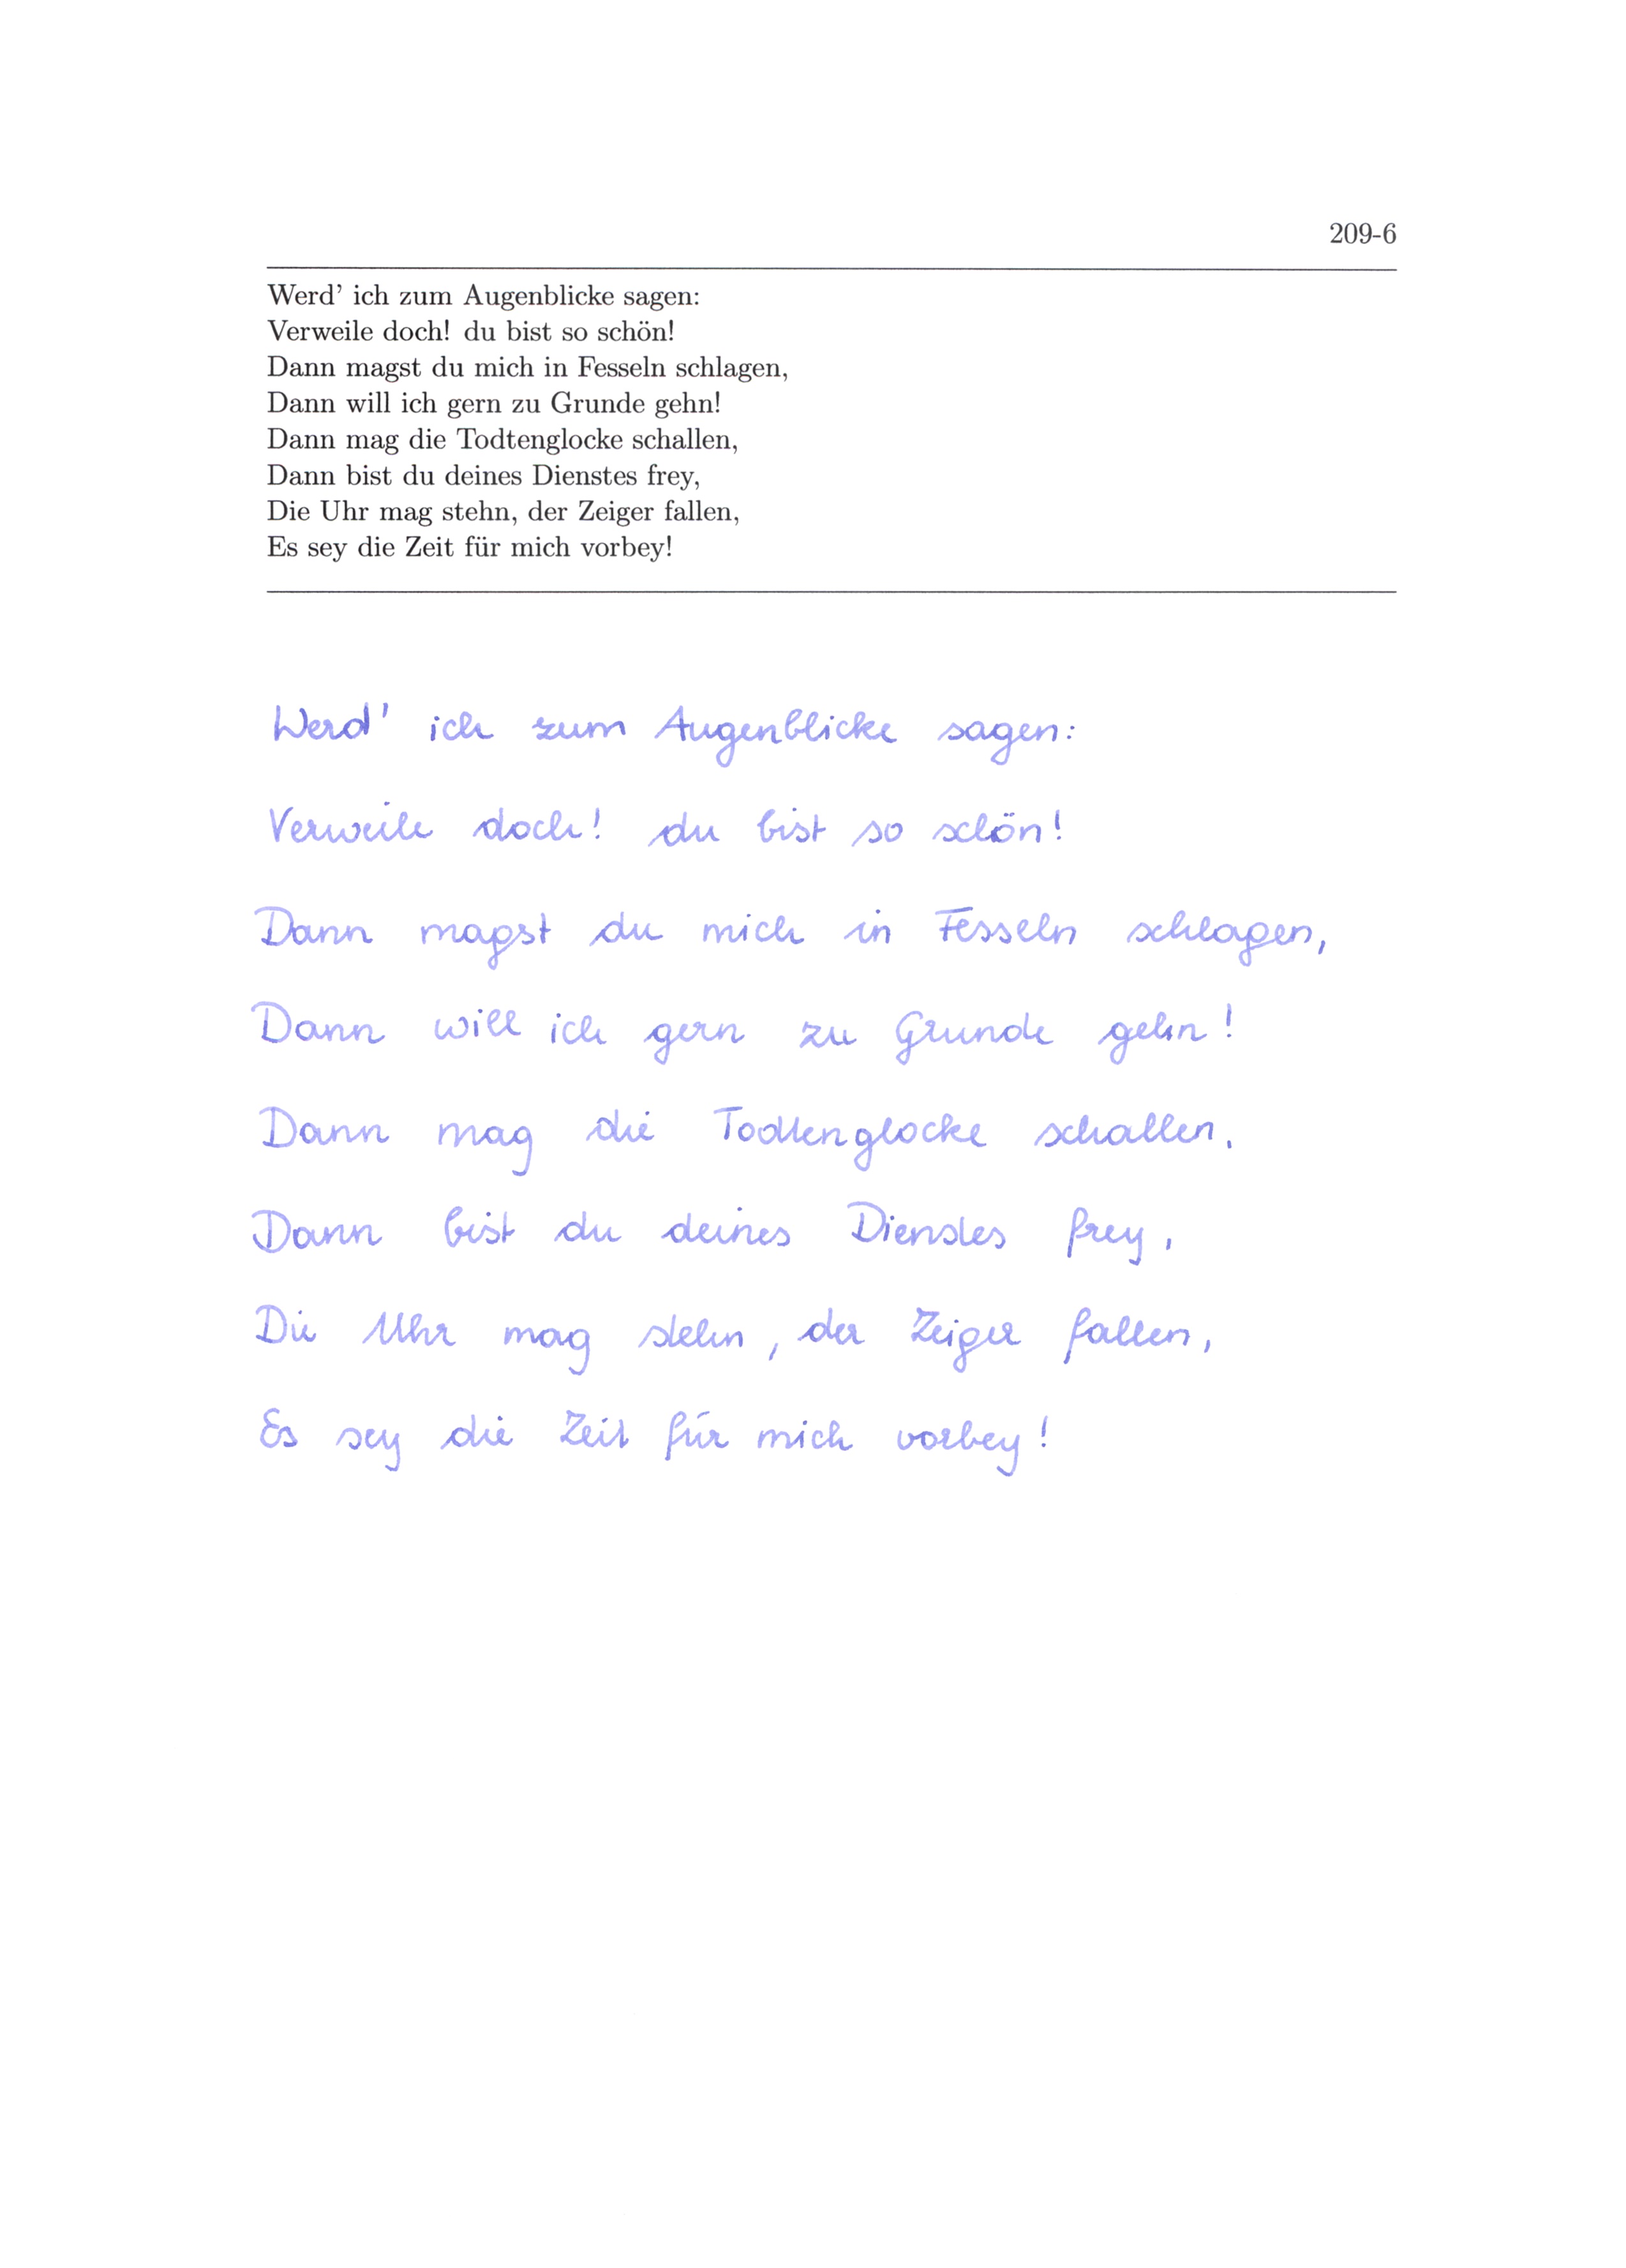 209-6
Werd' ich zum Augenblicke sagen:
Verweile doch! du bist so schön!
Dann magst du mich in Fesseln schlagen,
Dann will ich gern zu Grunde gehn!
Dann mag die Todtenglocke schallen,
Dann bist du deines Dienstes frey,
Die Uhr mag stehn, der Zeiger fallen,
Es sey die Zeit für mich vorbey!
Werd' ich zum Augenblicke sagen:
Verweile doch! du bist so schön!
Dann magst du mich in Fesseln schlagen,
Dann will ich gern zu Grunde gehn!
Dann mag die Todtenglocke schallen,
Dann bist du deines Dienstes frey,
Die Uhr mag stehn, der Zeiger fallen,
Es sey die Zeit für mich vorbey!